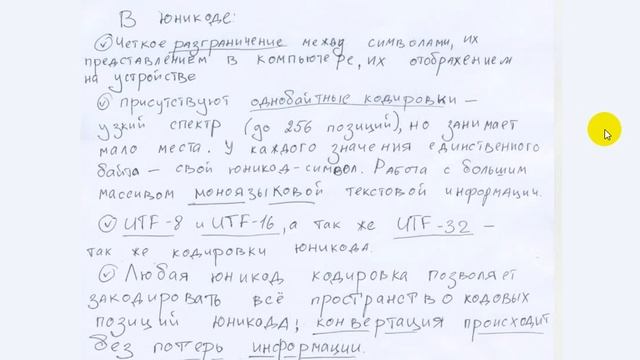 В юникоде:
Четкое разграничение между символами, их
представлением в компьютере, их отображением
на устройстве
присутствуют однобайтные кодировки –
узкий спектр (до 256 позиций), но занимает
мало места. У каждого значения единственного
байта – свой юникод-символ. Работа с большим
массивом моноязыковой текстовой информации.
UTF-8 и UTF-16, а так же UTF-32 –
так же кодировки юникода.
Любая юникод кодировка позволяет
закодировать всё пространство кодовых
позиций юникода; конвертация происходит
без потерь информации.